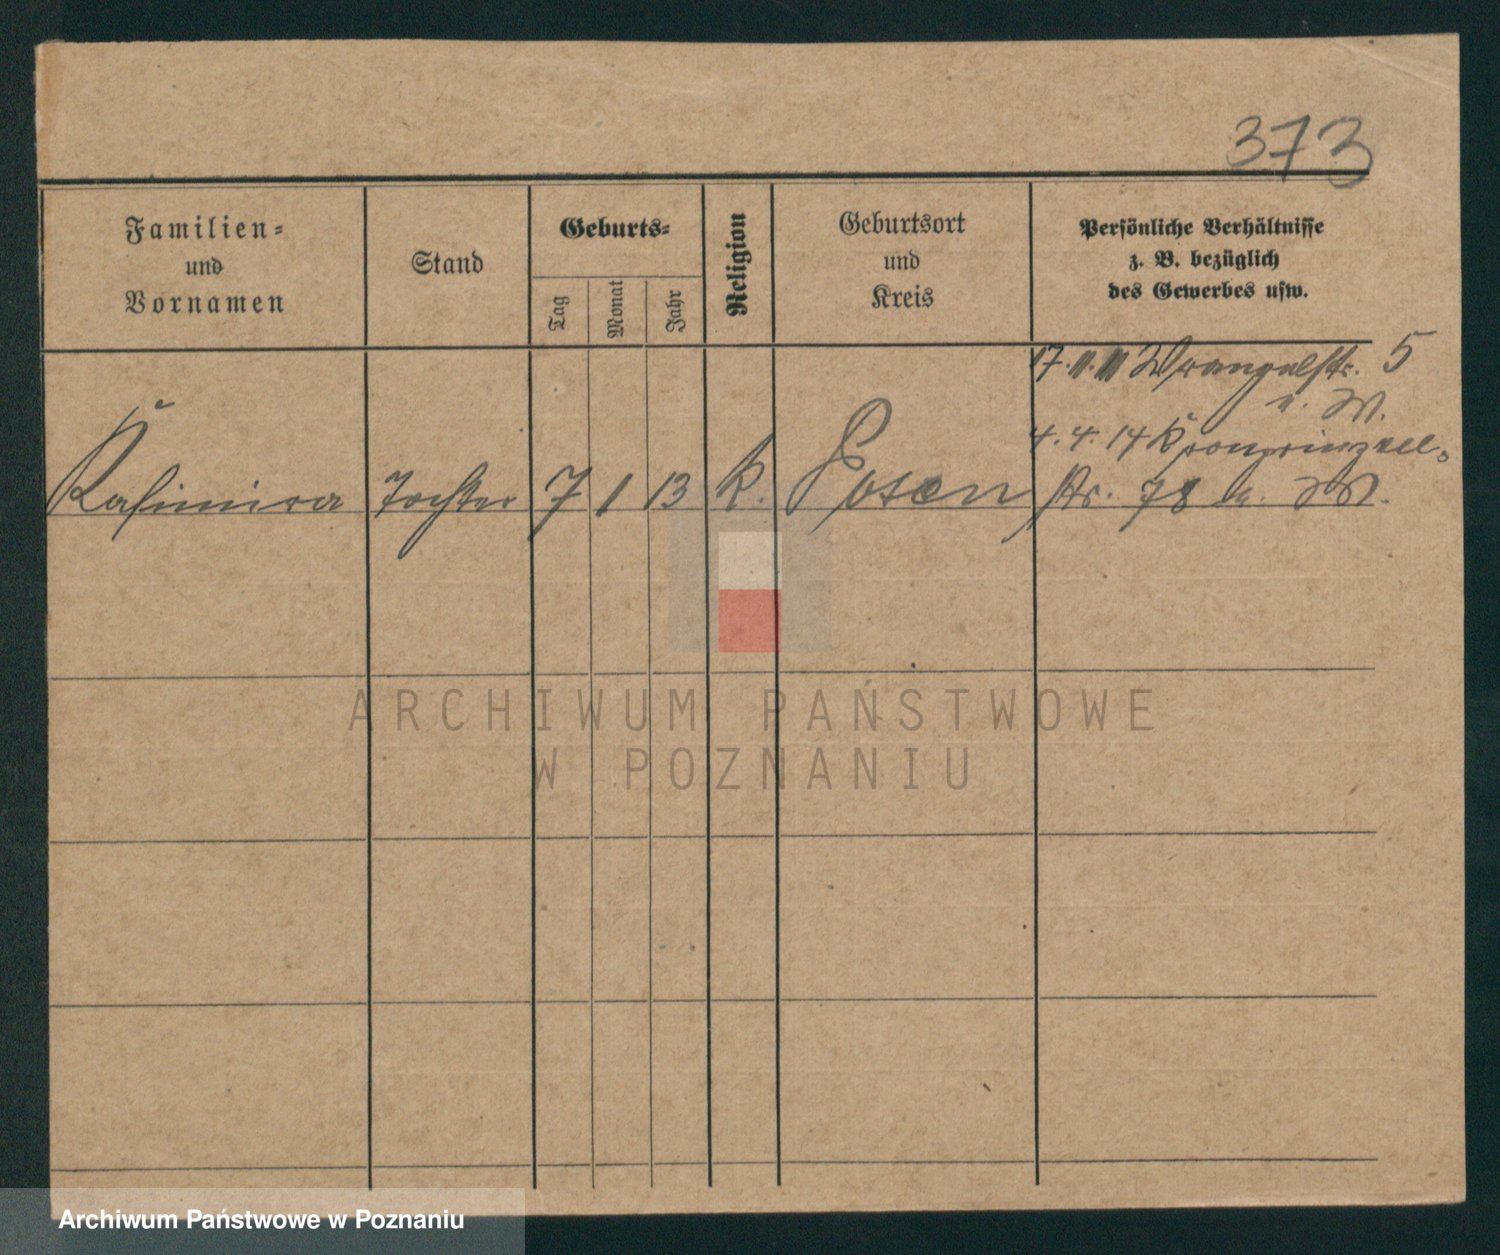 373
Familien=
und
Vornamen
Stand
Geburts=
Tag
Monat
Jahr
Religion
Geburtsort
und
Kreis
Persönliche Verhältnisse
z. B. bezüglich
des Gewerbes usw.
17. 11. 11 Wrangelstr. 5
u. W.
4. 4. 14 Kronprinzen-
Kasimira Tochter 7 1 13 k. Posen str. 78 u. W.
ARCHIWUM PAŃSTWOWE
W POZNANIU
Archiwum Państwowe w Poznaniu